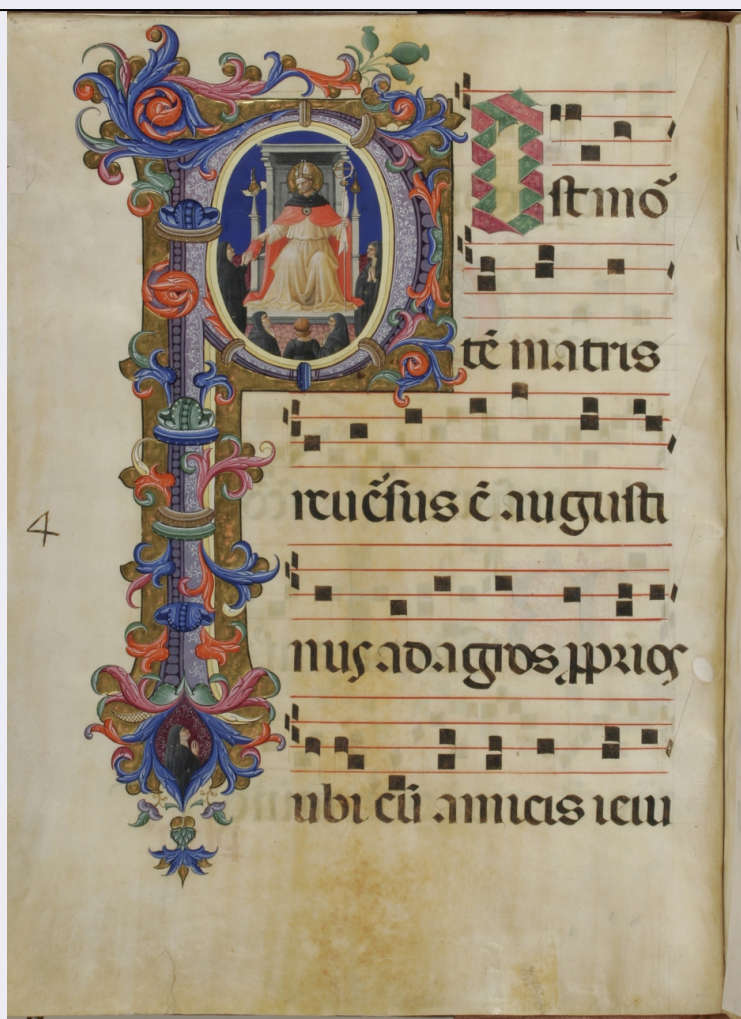 Post mō
tē matris
reuẽsus ē augusti
4
nus ad agros ꝓprios
ubi cū amicis ieiu